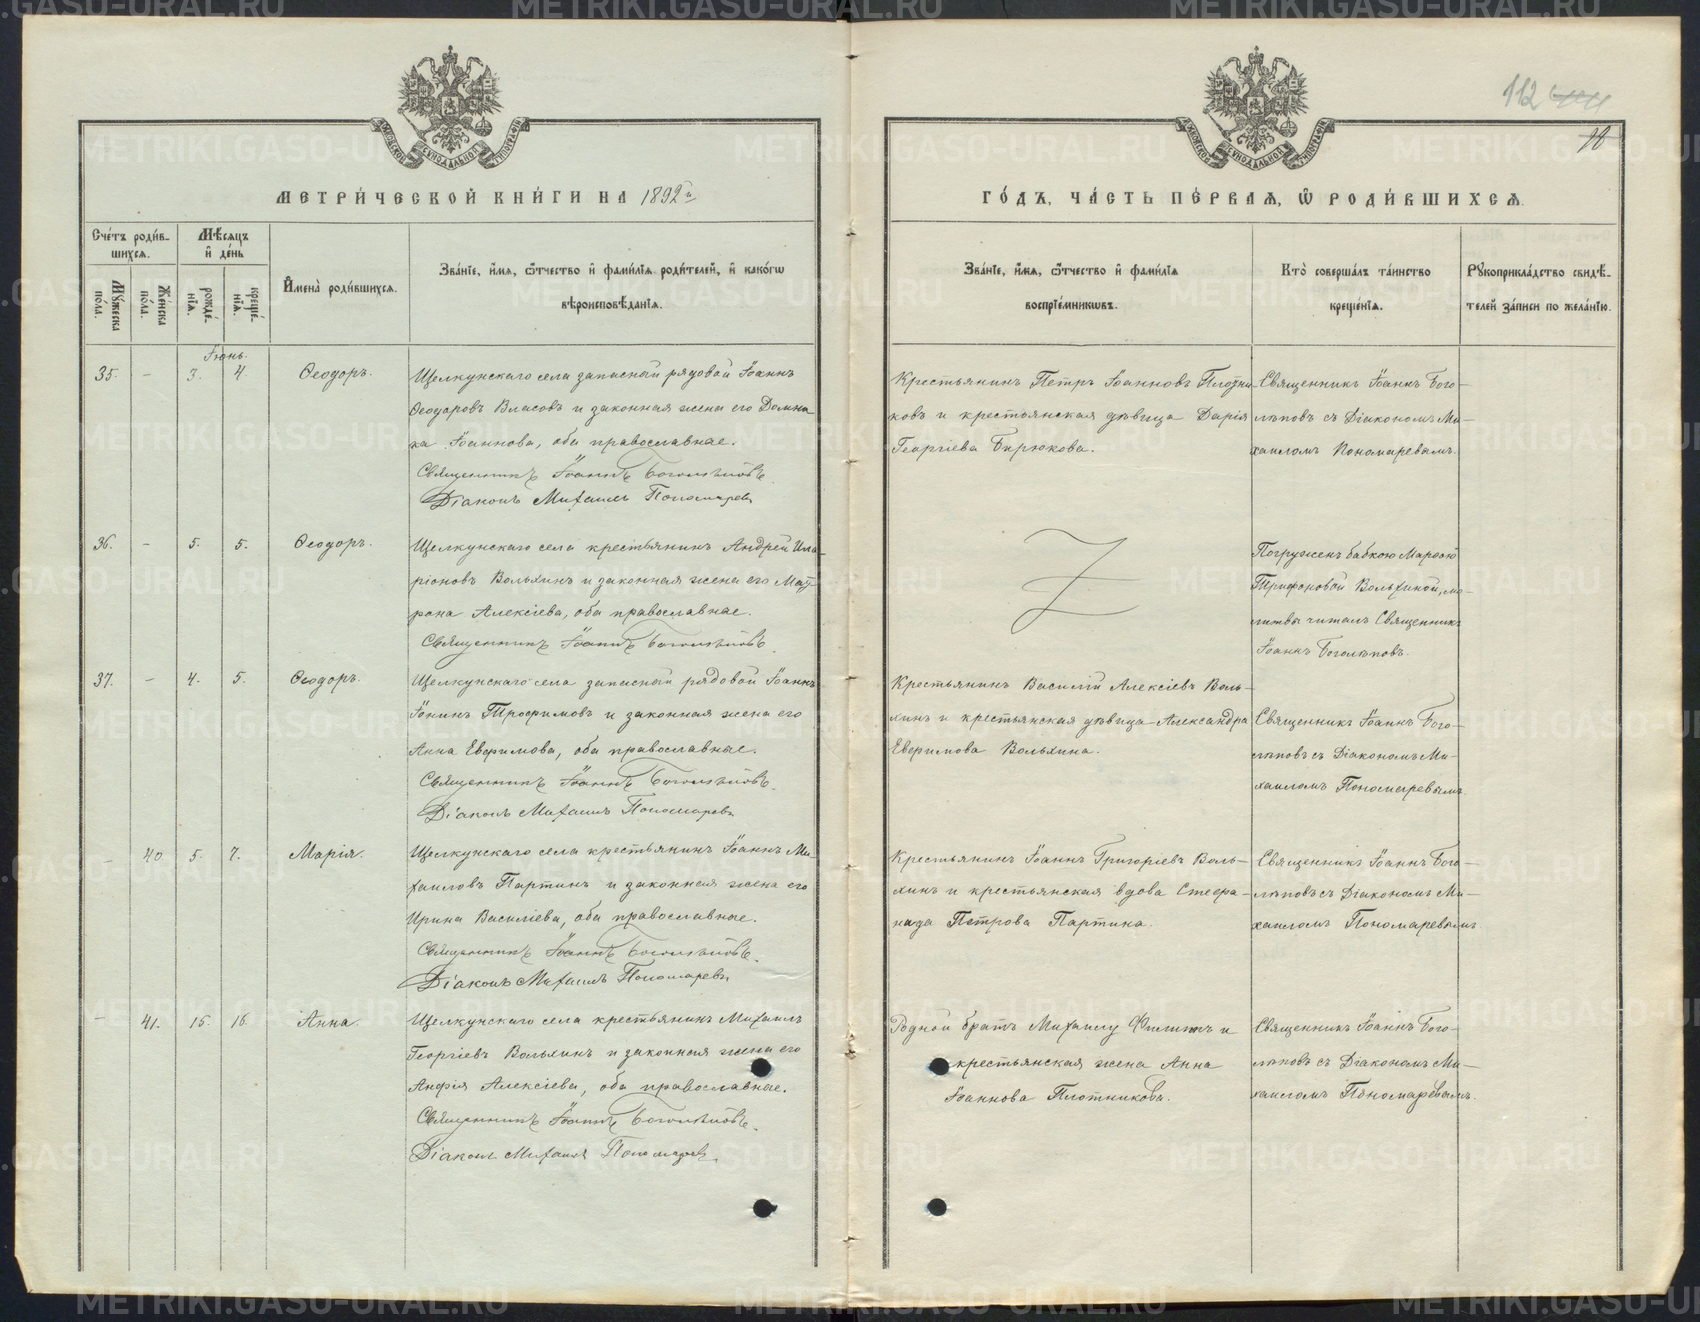 METRIKI.GASO-URAL.RU
112
МЕТРИ́ЧЕСКОЙ КНИ́ГИ НА 1892й
ГО́ДЪ, ЧА́СТЬ ПЕ́РВАѦ, Ѡ РОДИ́ВШИХСѦ.
Сче́тъ роди́в-
шихсѧ.
Мꙋ́жеска по́ла.
Же́нска по́ла.
Мѣ́сѧцъ
и҆ де́нь
рожде́-
нїѧ.
креще́-
нїѧ.
И҆мена̀ роди́вшихсѧ.
Зва́нїе, и҆́мѧ, ѻ҆́тчество и҆ фами́лїѧ роди́телей, и҆ како́гѡ
вѣроисповѣ́данїѧ.
Зва́нїе, и҆́мѧ, ѻ҆́тчество и҆ фами́лїѧ
воспрїе́мникѡвъ.
Кто̀ соверша́лъ та́инство
креще́нїѧ.
Рꙋкоприкла́дство свидѣ́-
телей за́писи по жела́нїю.
Іюнь.
35. - 3. 4. Ѳеодоръ. Щелкунскаго села запасный рядовой Іоаннъ
Ѳеодоровъ Власовъ и законная жена его Домни-
ка Іоаннова, оба православные.
Священникъ Іоаннъ Боголѣповъ.
Діаконъ Михаилъ Пономаревъ
Крестьянинъ Петръ Іоанновъ Плотни-
ковъ и крестьянская дѣвица Дарія
Георгіева Бирюкова.
Священникъ Іоаннъ Бого-
лѣповъ съ Діакономъ Ми-
хаиломъ Пономаревымъ.
36. - 5. 5. Ѳеодоръ. Щелкунскаго села крестьянинъ Андрей Ила-
ріоновъ Вольхинъ и законная жена его Мат-
рона Алексіева, оба православные.
Священникъ Іоаннъ Боголѣповъ.
Погруженъ бабкою Марѳою
Трифоновой Вольхиной, мо-
литвы читалъ Священникъ
Іоаннъ Боголѣповъ.
37. - 4. 5. Ѳеодоръ. Щелкунскаго села запасный рядовой Іоаннъ
Іонинъ Трофимовъ и законная жена его
Анна Евфимова, оба православные.
Священникъ Іоаннъ Боголѣповъ.
Діаконъ Михаилъ Пономаревъ
Крестьянинъ Василій Алексіевъ Воль-
хинъ и крестьянская дѣвица Александра
Евфимова Вольхина.
Священникъ Іоаннъ Бого-
лѣповъ съ Діакономъ Ми-
хаиломъ Пономаревымъ
- 40. 5. 7. Марія. Щелкунскаго села крестьянинъ Іоаннъ Ми-
хаиловъ Партинъ и законная жена его
Ирина Василіева, оба православные.
Священникъ Іоаннъ Боголѣповъ.
Діаконъ Михаилъ Пономаревъ
Крестьянинъ Іоаннъ Григоріевъ Воль-
хинъ и крестьянская вдова Стефа-
нида Петрова Партина.
Священникъ Іоаннъ Бого-
лѣповъ съ Діакономъ Ми-
хаиломъ Пономаревымъ
- 41. 15. 16. Анна. Щелкунскаго села крестьянинъ Михаилъ
Георгіевъ Вольхинъ и законная жена его
Анфія Алексіева, оба православные.
Священникъ Іоаннъ Боголѣповъ.
Діаконъ Михаилъ Пономаревъ
Родной братъ Михаилу Филиппъ и
крестьянская жена Анна
Іоаннова Плотникова.
Священникъ Іоаннъ Бого-
лѣповъ съ Діакономъ Ми-
хаиломъ Пономаревымъ.